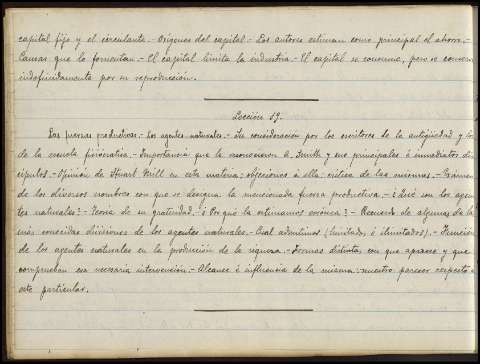 capital fijo y el circulante.- Orígenes del capital.- Los autores estiman como principal el ahorro.-
Causas que lo fomentan.- El capital limita la industria.- El capital se consume, pero se conserva
indefinidamente por su reproducción.
Lección 19.
Las fuerzas productivas.- Los agentes naturales.- Su consideración por los escritores de la antigüedad y los
de la escuela fisiocrática.- Importancia que le reconocieron A. Smith y sus principales é inmediatos dis
cípulos.- Opinión de Stuart Mill en esta materia; objeciones á ella: crítica de las mismas.- Exámen
de los diversos nombres con que se designa la mencionada fuerza productiva.- ¿Qué son los agen
tes naturales?- Teoría de su gratuidad.- ¿Por qué la estimamos errónea?- Recuerdo de algunas de las
más conocidas divisiones de los agentes naturales.- Cual admitimos (limitados, é ilimitados).- Función
de los agentes naturales en la producción de la riqueza.- Formas distintas con que aparece y que
comprueban su necesaria intervención.- Alcance é influencia de la misma: nuestro parecer respecto á
este particular.